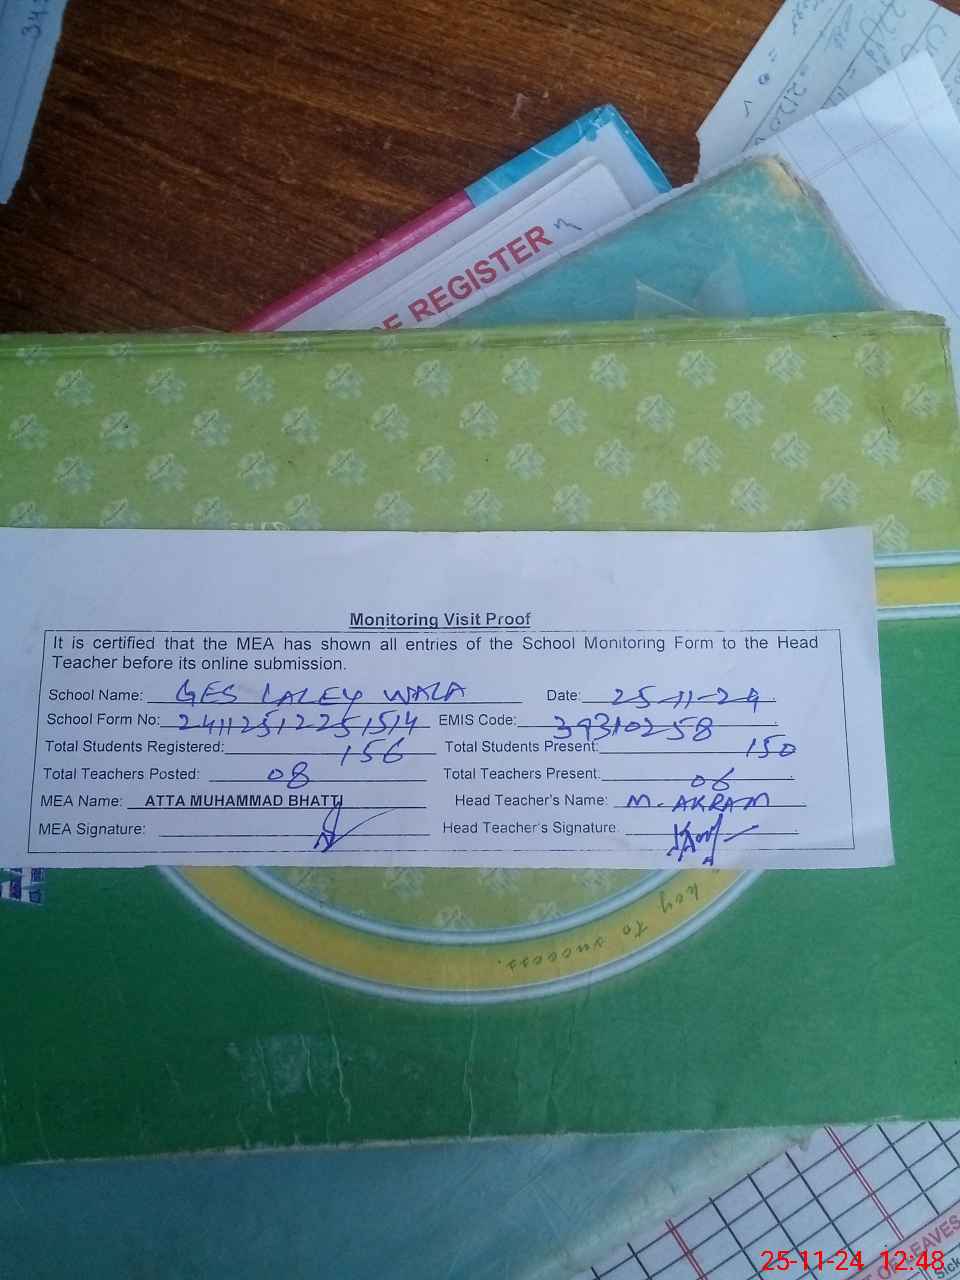 REGISTER
Monitoring Visit Proof
It is certified that the MEA has shown all entries of the School Monitoring Form to the Head
Teacher before its online submission.
School Name: GES LALEY WALA Date: 25-11-24
School Form No: 241125122251514 EMIS Code: 39310258
Total Students Registered: 156 Total Students Present: 150
Total Teachers Posted: 08 Total Teachers Present: 06
MEA Name: ATTA MUHAMMAD BHATTI Head Teacher's Name: M. AKRAM
MEA Signature: Head Teacher's Signature.
key to success.
OF LEAVES
Sick
25-11-24 12:48